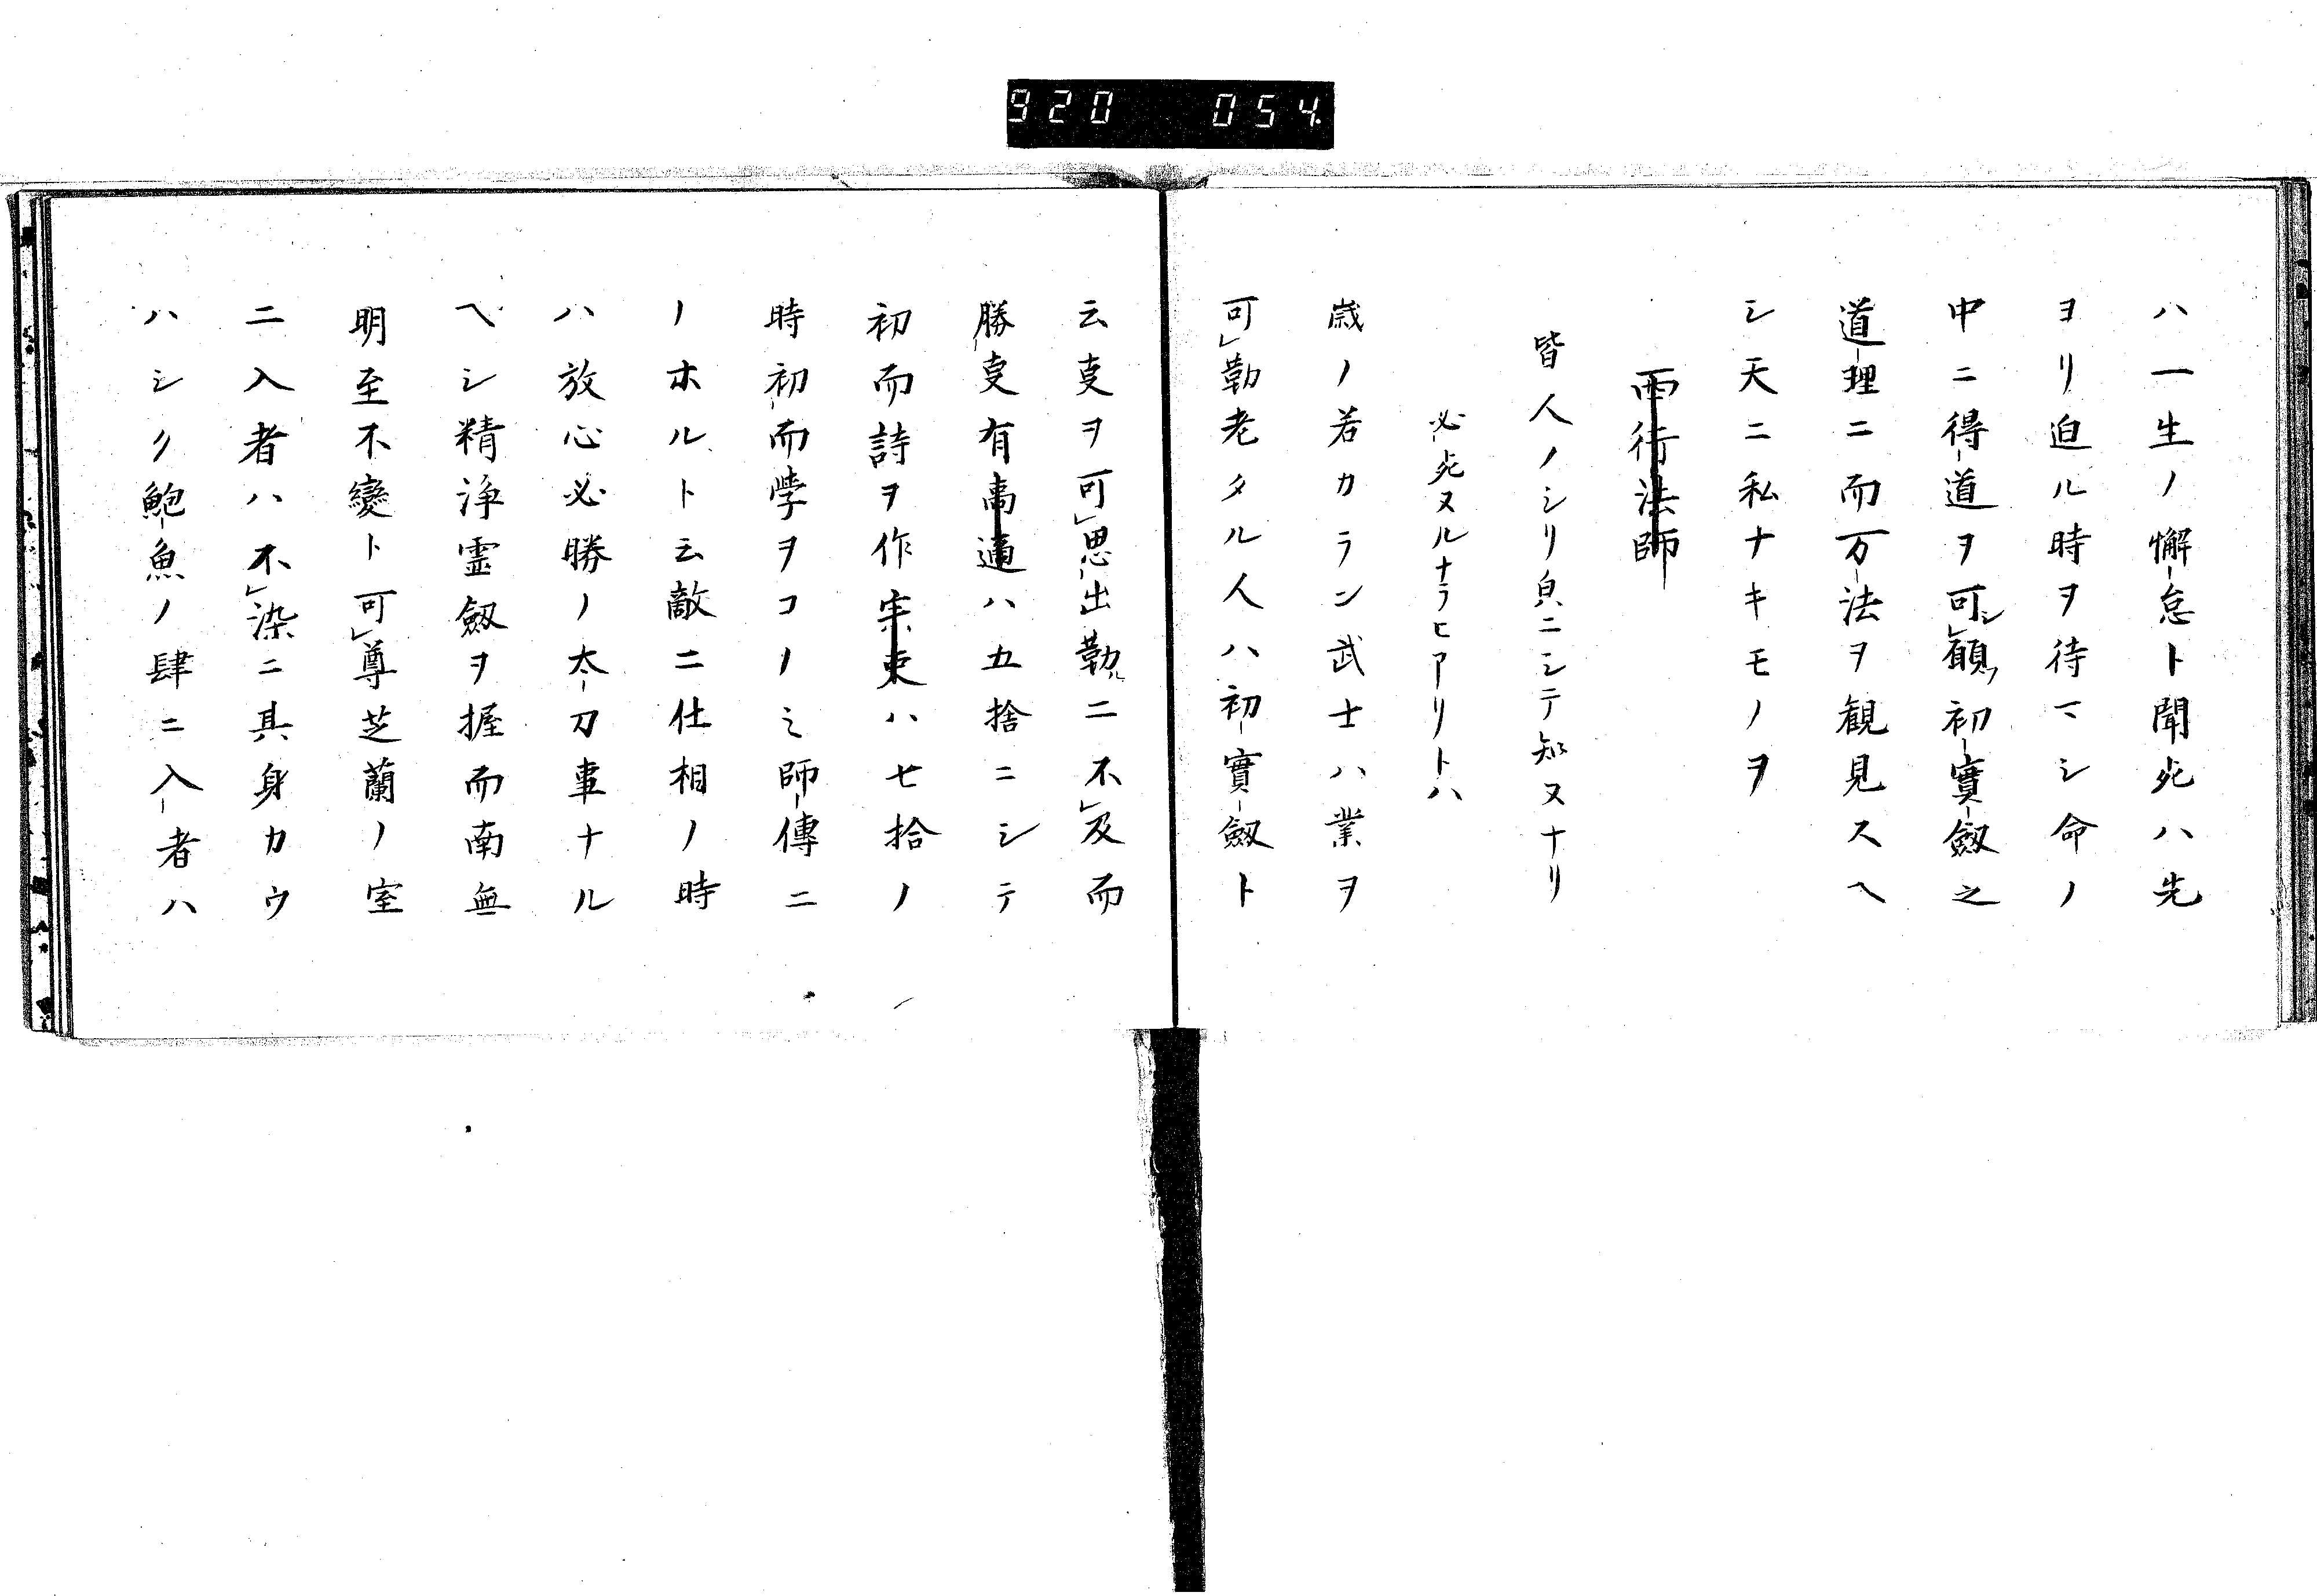 920 054
ハ一生ノ懈怠ト聞死ハ先
ヨリ迫ル時ヲ待マシ命ノ
中ニ得道ヲ可シ願フ初實劔之
道理ニ而万法ヲ観見スヘ
シ天ニ私ナキモノヲ
西行法師
皆人ノシリ皃ニシテ知ヌナリ
必死ヌルナラヒアリトハ
歳ノ若カラン武士ハ業ヲ
可勤老タル人ハ初實劔ト
云叓ヲ可思出勤ルニ不及而
勝叓有高適ハ五捨ニシテ
初而詩ヲ作宗束ハ七拾ノ
時初而學ヲコノミ師傳ニ
ノホルト云敵ニ仕相ノ時
ハ放心必勝ノ太刀車ナル
ヘシ精浄霊劔ヲ握而南無
明至不變ト可尊芝蘭ノ室
ニ入者ハ不染ニ其身カウ
ハシク鮑魚ノ肆ニ入者ハ